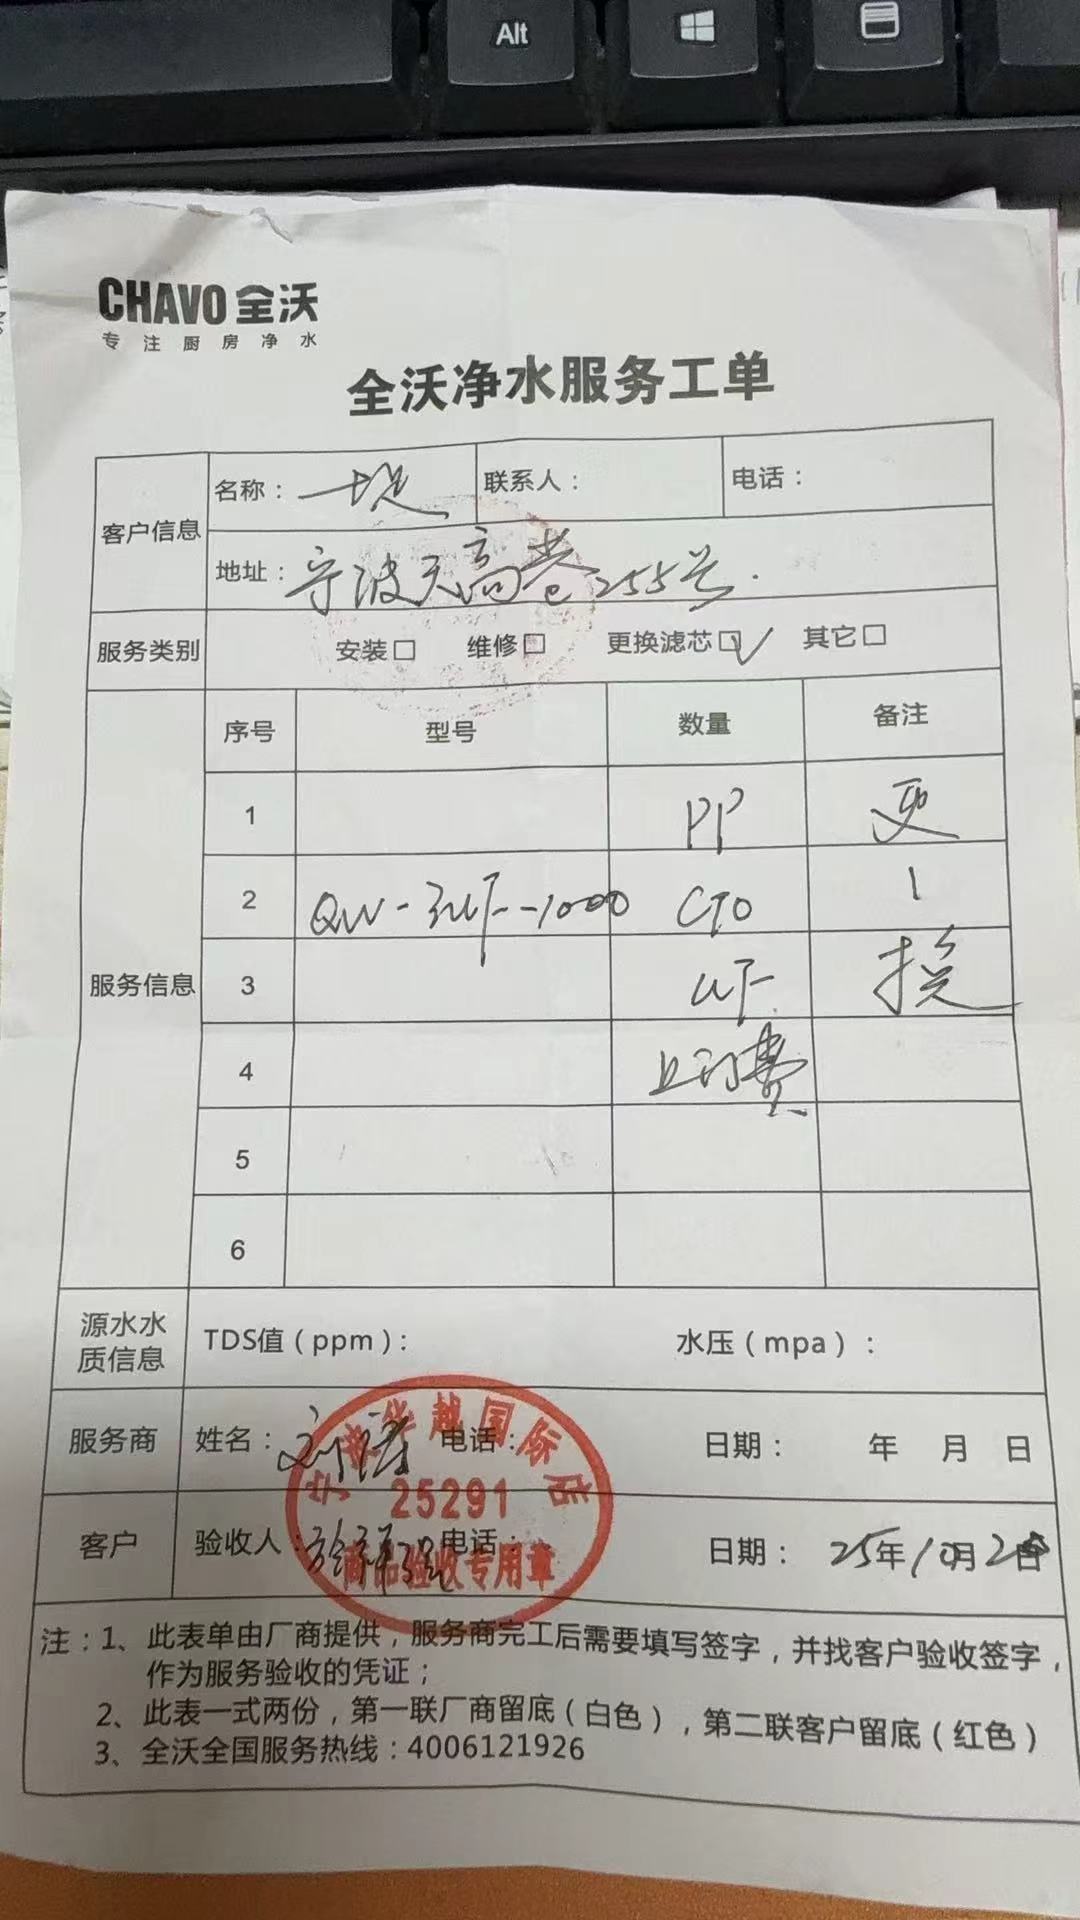 Alt
CHAVO 全沃
专注厨房净水
全沃净水服务工单
客户信息
名称： 联系人： 电话：
地址：宁波天高巷255号.
服务类别 安装□ 维修□ 更换滤芯□✓ 其它□
服务信息
序号 型号 数量 备注
1 PP 更
2 QW-3UF-1000 CTO 1
3 UF 换
4 上门费
5
6
源水水质信息 TDS值（ppm）： 水压（mpa）：
服务商 姓名： 电话： 日期： 年 月 日
华越国际店
25291
客户 验收人： 电话： 日期： 25年10月2 日
商品验收专用章
注：1、此表单由厂商提供，服务商完工后需要填写签字，并找客户验收签字，
作为服务验收的凭证；
2、此表一式两份，第一联厂商留底（白色），第二联客户留底（红色）
3、全沃全国服务热线：4006121926